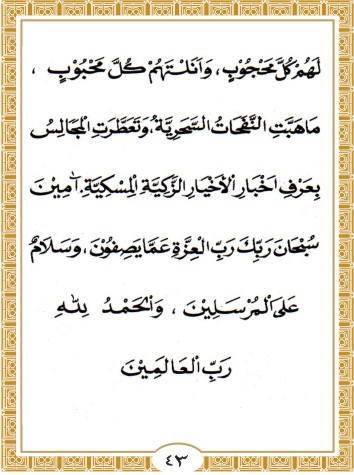 لَهُمْ كُلَّ مَحْجُوْبٍ، وَاَنَلْتَهُمْ كُلَّ مَحْبُوْبٍ ،
مَاهَبَّتِ النَّفَحَاتُ السَّحَرِيَّةُ، وَتَعَطَّرَتِ الْمَجَالِسُ
بِعَرْفِ اَخْبَارِ الْاَخْيَارِ الزَّكِيَّةِ الْمِسْكِيَّةِ. آمِيْنَ
سُبْحَانَ رَبِّكَ رَبِّ الْعِزَّةِ عَمَّا يَصِفُوْنَ، وَسَلَامٌ
عَلَى الْمُرْسَلِيْنَ ، وَالْحَمْدُ لِلّٰهِ
رَبِّ الْعَالَمِيْنَ
٤٣